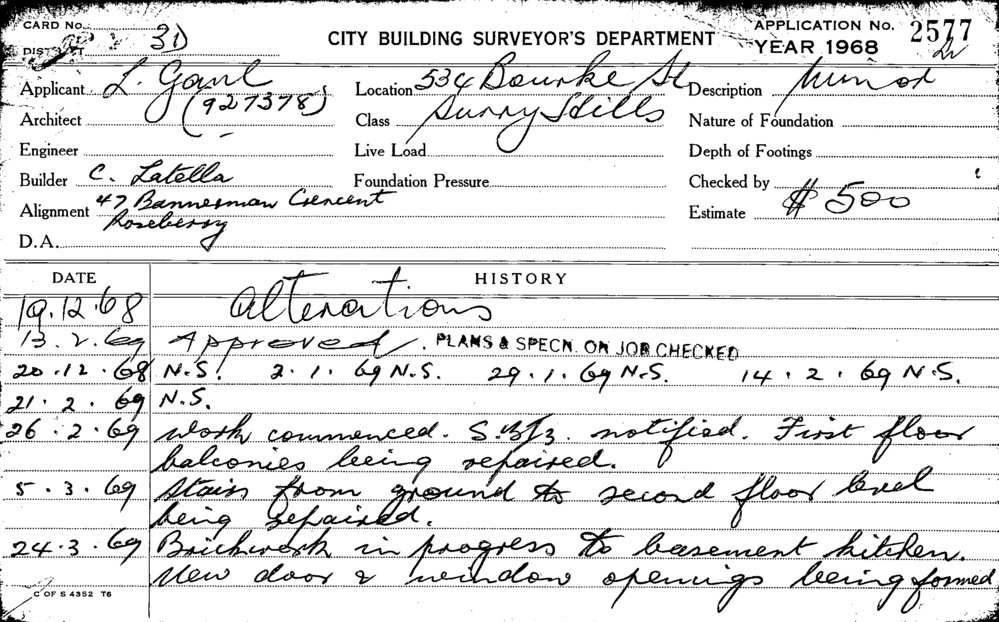 CARD No. 31
DISTRICT
CITY BUILDING SURVEYOR'S DEPARTMENT
APPLICATION No. 2577
YEAR 1968
Applicant L. Gaul
(927378)
Location 534 Bourke St
Surry Hills
Description Minor
Architect
Class
Nature of Foundation
Engineer
Live Load
Depth of Footings
Builder C. Latella
Foundation Pressure
Checked by
Alignment 47 Bannerman Crescent
Roseberry
Estimate $ 500
D.A.
DATE HISTORY
19.12.68 Alterations
13.2.69 Approved. PLANS & SPECN. ON JOB CHECKED
20.12.68 N.S. 2.1.69 N.S. 29.1.69 N.S. 14.2.69 N.S.
21.2.69 N.S.
26.2.69 Work commenced. notified. First floor
balconies being repaired.
5.3.69 Stairs from ground to second floor level
being repaired.
24.3.69 Brickwork in progress to basement kitchen.
New door & window openings being formed
C OF S 4352 T6